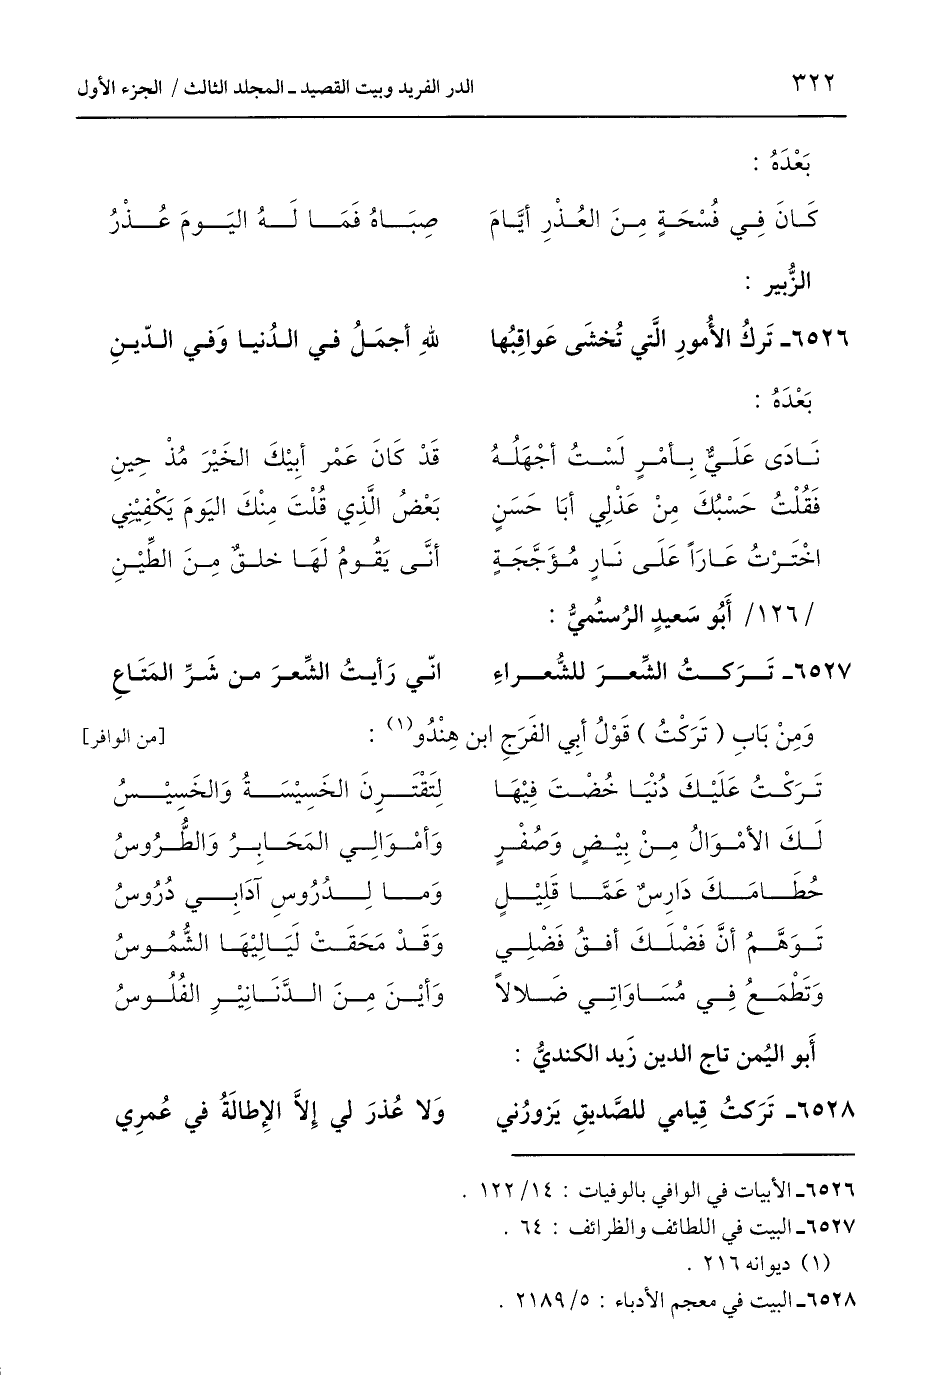 ٣٢٢ الدر الفريد وبيت القصيد ـ المجلد الثالث / الجزء الأول
بَعْدَهُ :
كَانَ فِي فُسْحَةٍ مِنَ العُذْرِ أيَّامَ صِبَاهُ فَمَا لَهُ اليَومَ عُذْرُ
الزُّبير :
٦٥٢٦ـ تَركُ الأُمورِ الَّتي تُخشَى عَواقِبُها للهِ أجمَلُ في الدُنيا وَفي الدّينِ
بَعْدَهُ :
نَادَى عَلَيٌّ بِأمْرٍ لَسْتُ أجْهَلُهُ قَدْ كَانَ عَمْر أبِيْكَ الخَيْرَ مُذْ حِينِ
فَقُلْتُ حَسْبُكَ مِنْ عَذْلِي أبَا حَسَنٍ بَعْضُ الَّذِي قُلْتَ مِنْكَ اليَومَ يَكْفِيْنِي
اخْتَرْتُ عَارَاً عَلَى نَارٍ مُؤَجَّجَةٍ أنَّى يَقُومُ لَهَا خلقٌ مِنَ الطِّيْنِ
/ ١٢٦/ أَبُو سَعيدٍ الرُستُميُّ :
٦٥٢٧ـ تَرَكتُ الشِّعرَ للشُّعراءِ انّي رَأيتُ الشِّعرَ من شَرِّ المَتَاعِ
وَمِنْ بَابِ ( تَرَكْتُ ) قَوْلُ أبِي الفَرَجِ ابن هِنْدُو(١) : [من الوافر]
تَرَكْتُ عَلَيْكَ دُنْيَا خُضْتَ فِيْهَا لِتَقْتَرِنَ الخَسِيْسَةُ وَالخَسِيْسُ
لَكَ الأمْوَالُ مِنْ بِيْضٍ وَصُفْرٍ وَأمْوَالِي المَحَابِرُ وَالطُّرُوسُ
حُطَامَكَ دَارِسٌ عَمَّا قَلِيْلٍ وَمَا لِدُرُوسِ آدَابِي دُرُوسُ
تَوَهَّمُ أنَّ فَضْلَكَ أفقُ فَضْلِي وَقَدْ مَحَقَتْ لَيَالِيْهَا الشُّمُوسُ
وَتَطْمَعُ فِي مُسَاوَاتِي ضَلالاً وَأيْنَ مِنَ الدَّنَانِيْرِ الفُلُوسُ
أَبو اليُمن تاج الدين زَيد الكنديُّ :
٦٥٢٨ـ تَرَكتُ قِيامي للصَّديقِ يَزورُني وَلا عُذرَ لي إِلاَّ الإِطالَةُ في عُمرِي
٦٥٢٦ـ الأبيات في الوافي بالوفيات : ١٤/ ١٢٢ .
٦٥٢٧ـ البيت في اللطائف والظرائف : ٦٤ .
(١) ديوانه ٢١٦ .
٦٥٢٨ـ البيت في معجم الأدباء : ٥/ ٢١٨٩ .